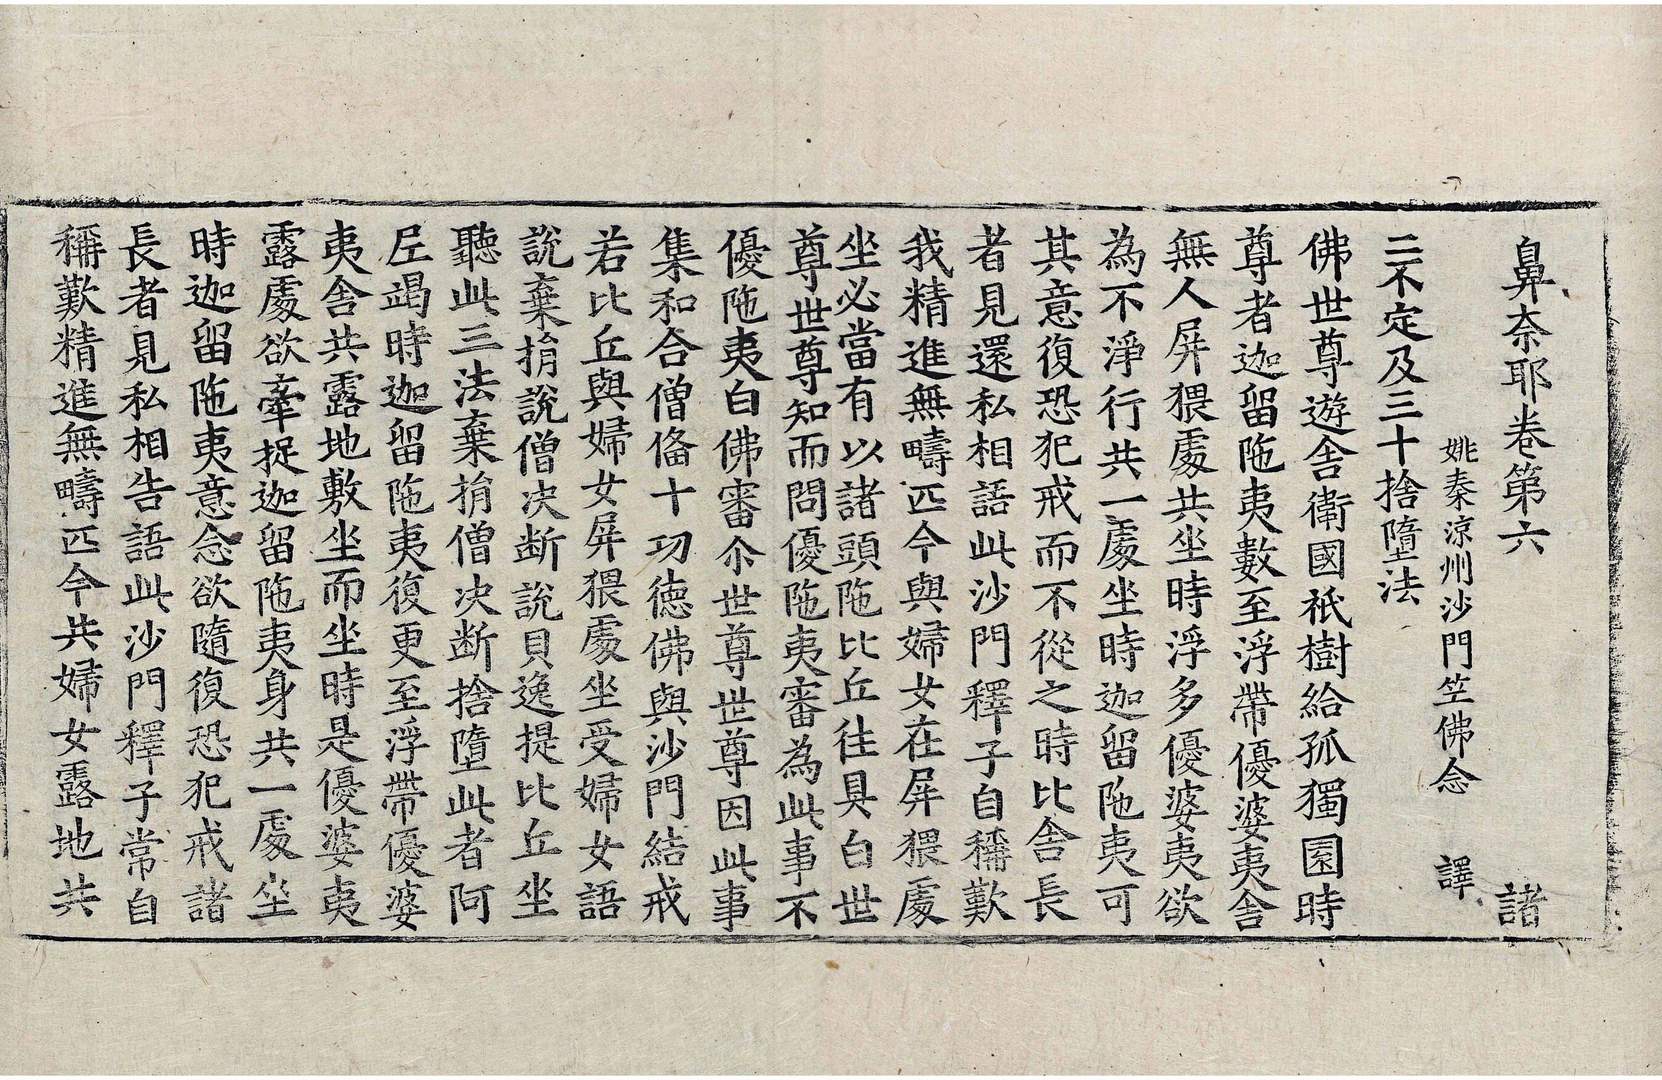 鼻奈耶卷第六　諸
姚秦涼州沙門竺佛念　譯
二不定及三十捨墮法
佛世尊遊舍衛國祇樹給孤獨園時
尊者迦留陁夷數至浮帶優婆夷舍
無人屏猥處共坐時浮多優婆夷欲
為不淨行共一處坐時迦留陁夷可
其意復恐犯戒而不從之時比舍長
者見還私相語此沙門釋子自稱歎
我精進無疇匹今與婦女在屏猥處
坐必當有以諸頭陁比丘往具白世
尊世尊知而問優陁夷審為此事不
優陁夷白佛審尒世尊世尊因此事
集和合僧俻十功德佛與沙門結戒
若比丘與婦女屏猥處坐受婦女語
說棄捐說僧决断說貝逸提比丘坐
聽此三法棄捐僧决断捨墮此者阿
尼竭時迦留陁夷復更至浮帶優婆
夷舍共露地敷坐而坐時是優婆夷
露處欲牽捉迦留陁夷身共一處坐
時迦留陁夷意念欲隨復恐犯戒諸
長者見私相告語此沙門釋子常自
稱歎精進無疇匹今共婦女露地共